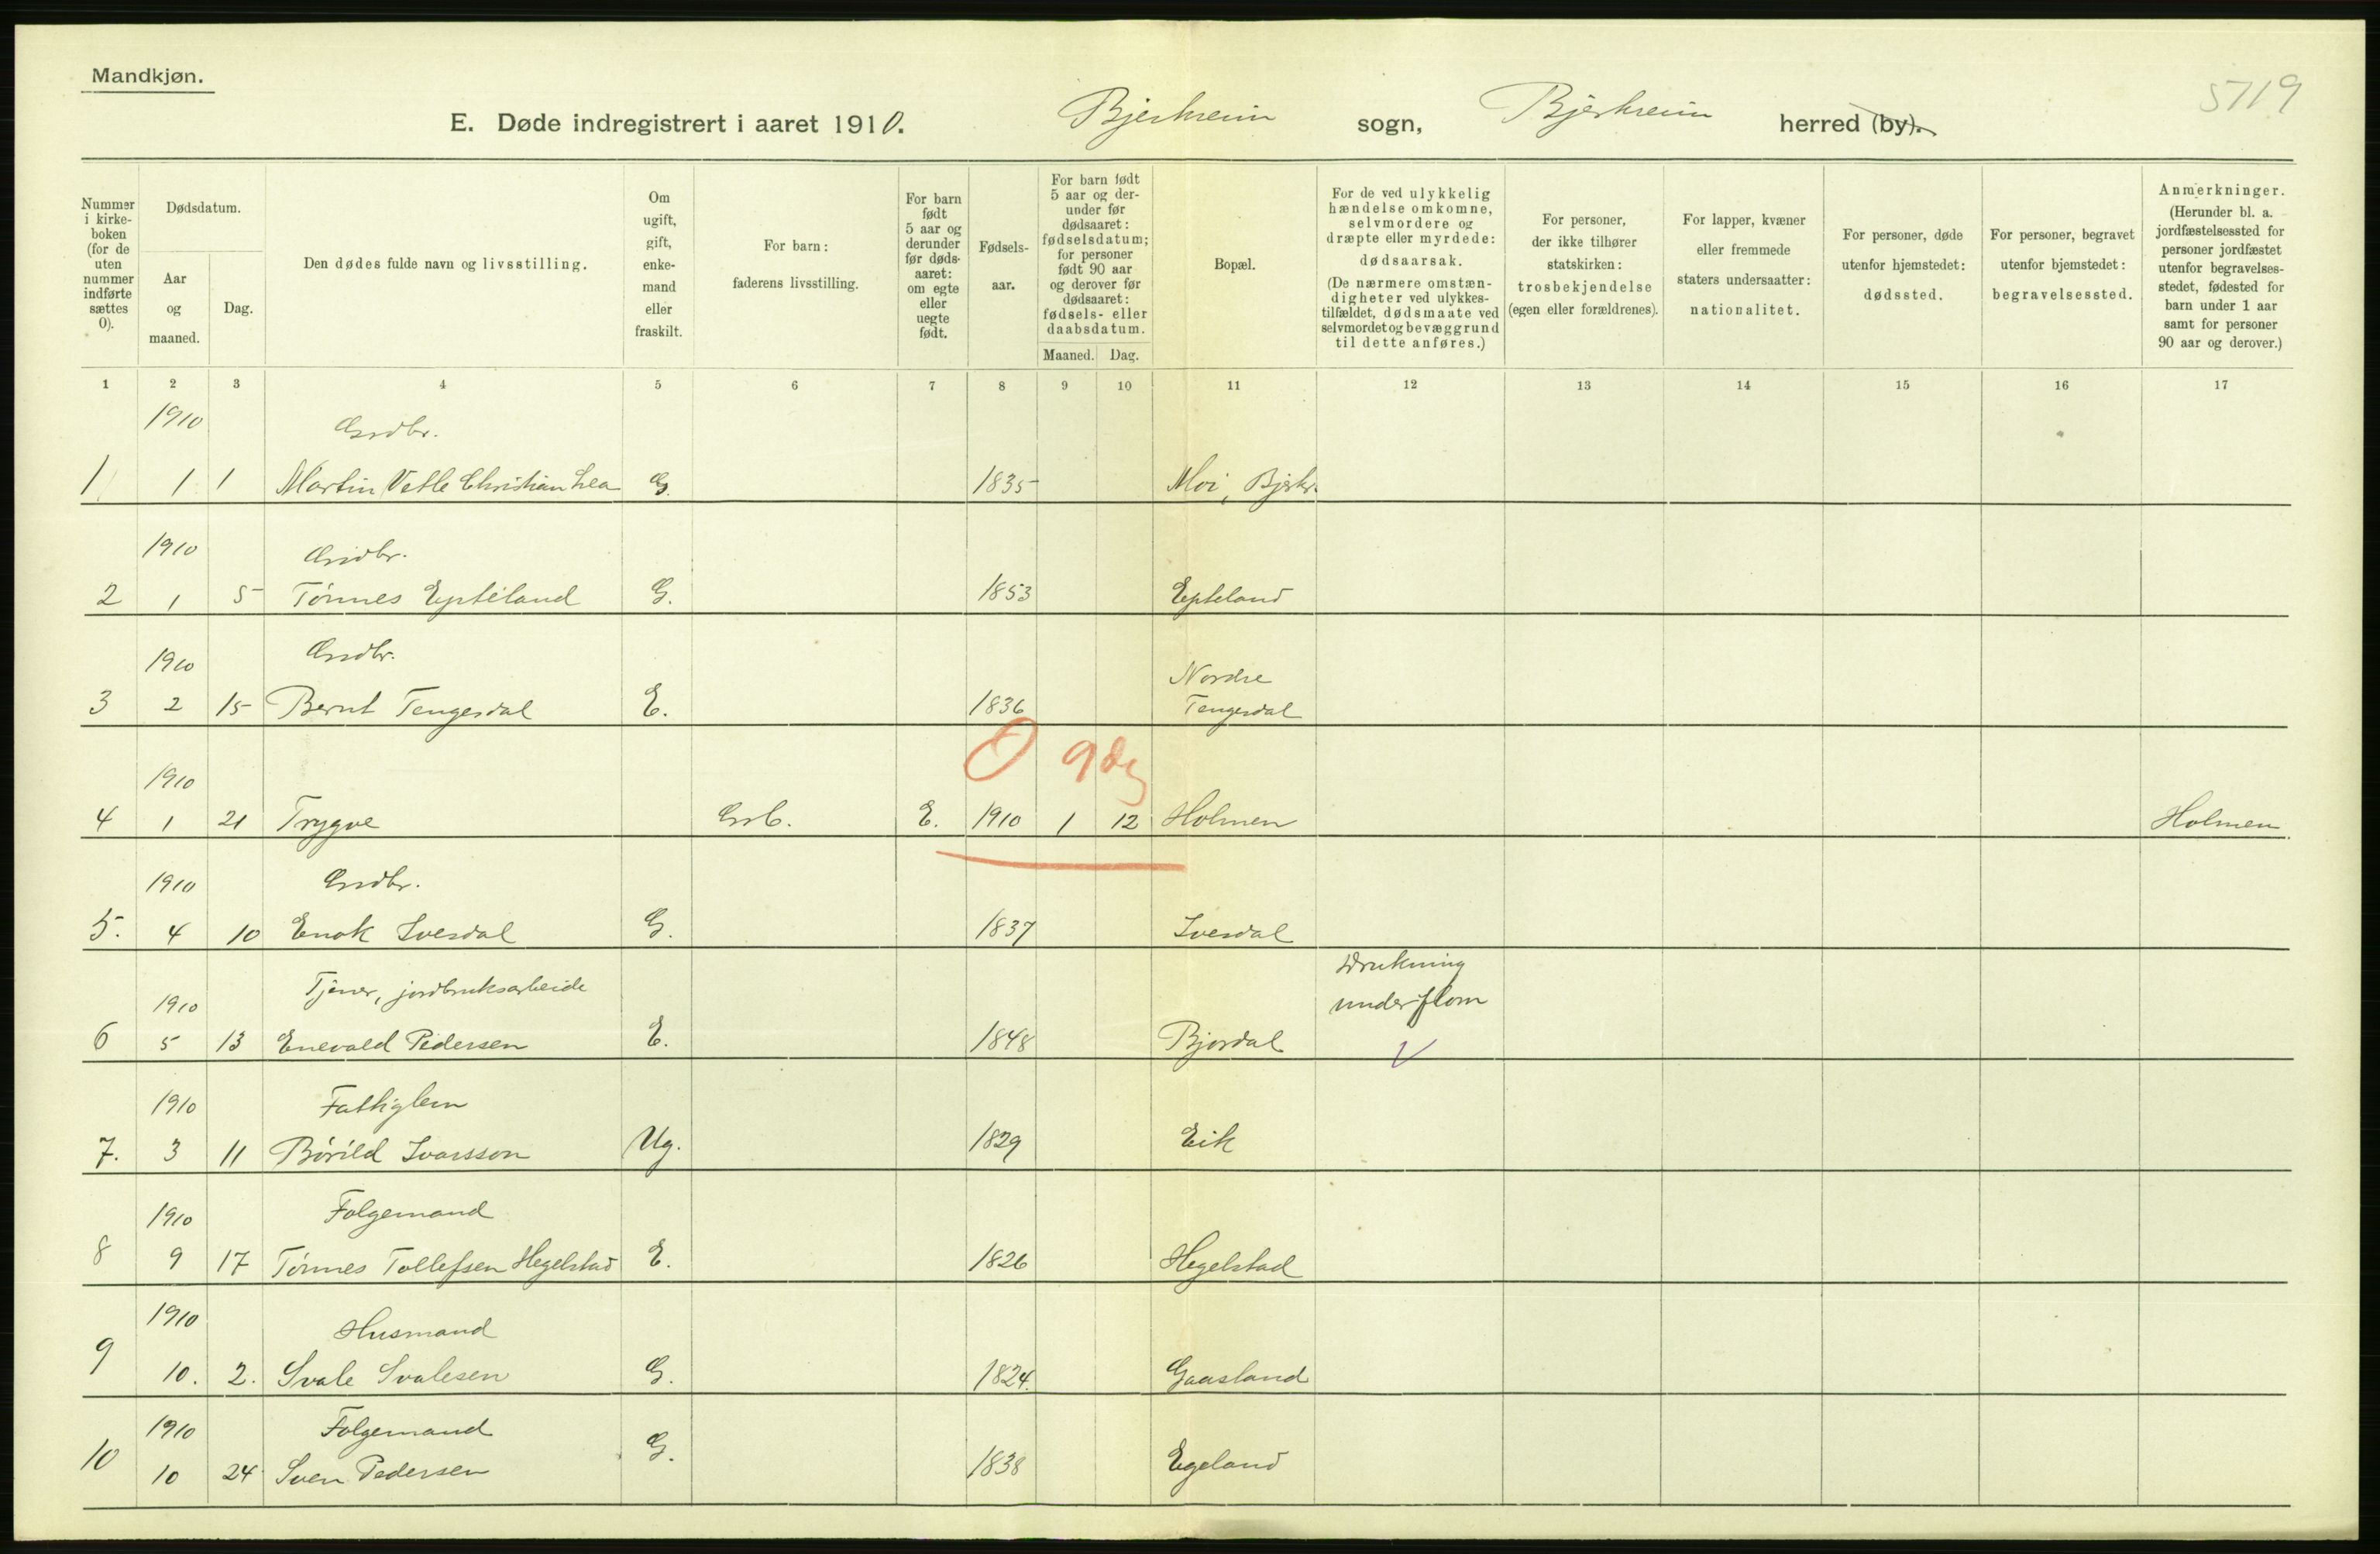 Mandkjøn.
5719
E. Døde indregistrert i aaret 1910. Bjerkreim sogn, Bjerkreim herred (by).
Nummer i kirke-boken (for de uten nummer indførte sættes 0).
Dødsdatum.
Aar og maaned.
Dag.
Den dødes fulde navn og livsstilling.
Om ugift, gift, enke-mand eller fraskilt.
For barn: faderens livsstilling.
For barn født 5 aar og derunder før døds-aaret: om egte eller uegte født.
Fødsels-aar.
For barn født 5 aar og der-under før dødsaaret: fødselsdatum; for personer født 90 aar og derover før dødsaaret: fødsels- eller daabsdatum.
Maaned. Dag.
Bopæl.
For de ved ulykkelig hændelse omkomne, selvmordere og dræpte eller myrdede: dødsaarsak.
(De nærmere omstæn-digheter ved ulykkes-tilfældet, dødsmaate ved selvmordet og bevæggrund til dette anføres.)
For personer, der ikke tilhører statskirken: trosbekjendelse (egen eller forældrenes).
For lapper, kvæner eller fremmede staters undersaatter: nationalitet.
For personer, døde utenfor hjemstedet: dødssted.
For personer, begravet utenfor bjemstedet: begravelsessted.
Anmerkninger.
(Herunder bl. a. jordfæstelsessted for personer jordfæstet utenfor begravelses-stedet, fødested for barn under 1 aar samt for personer 90 aar og derover.)
1 2 3 4 5 6 7 8 9 10 11 12 13 14 15 16 17
1910 Grdbr.
1 1 1 Martin Vetle Christian Lea G. 1835 Moi, Bjerkr.
1910 Grdbr.
2 1 5 Tønnes Epteland G. 1853 Epteland
1910 Grdbr. Nordre
3 2 15 Bernt Tengesdal E. 1836 Tengesdal
0 9 dg
1910
4 1 21 Trygve Grb. E. 1910 1 12 Holmen Holmen
1910 Grdbr.
5. 4 10 Enok Ivesdal G. 1837 Ivesdal
Drukning
1910 Tjener, jordbruksarbeide under flom
6 5 13 Enevald Pedersen E. 1848 Bjordal
1910 Fattiglem
7. 3 11 Bórild Ivarsson Ug. 1829 Eik
1910 Folgemand
8 9 17 Tønnes Tollefsen Hegelstad E. 1826 Hegelstad
1910 Husmand
9 10. 2. Svale Svalesen G. 1824. Gaasland
1910 Folgemand
10 10 24 Sven Pedersen G. 1838 Egeland